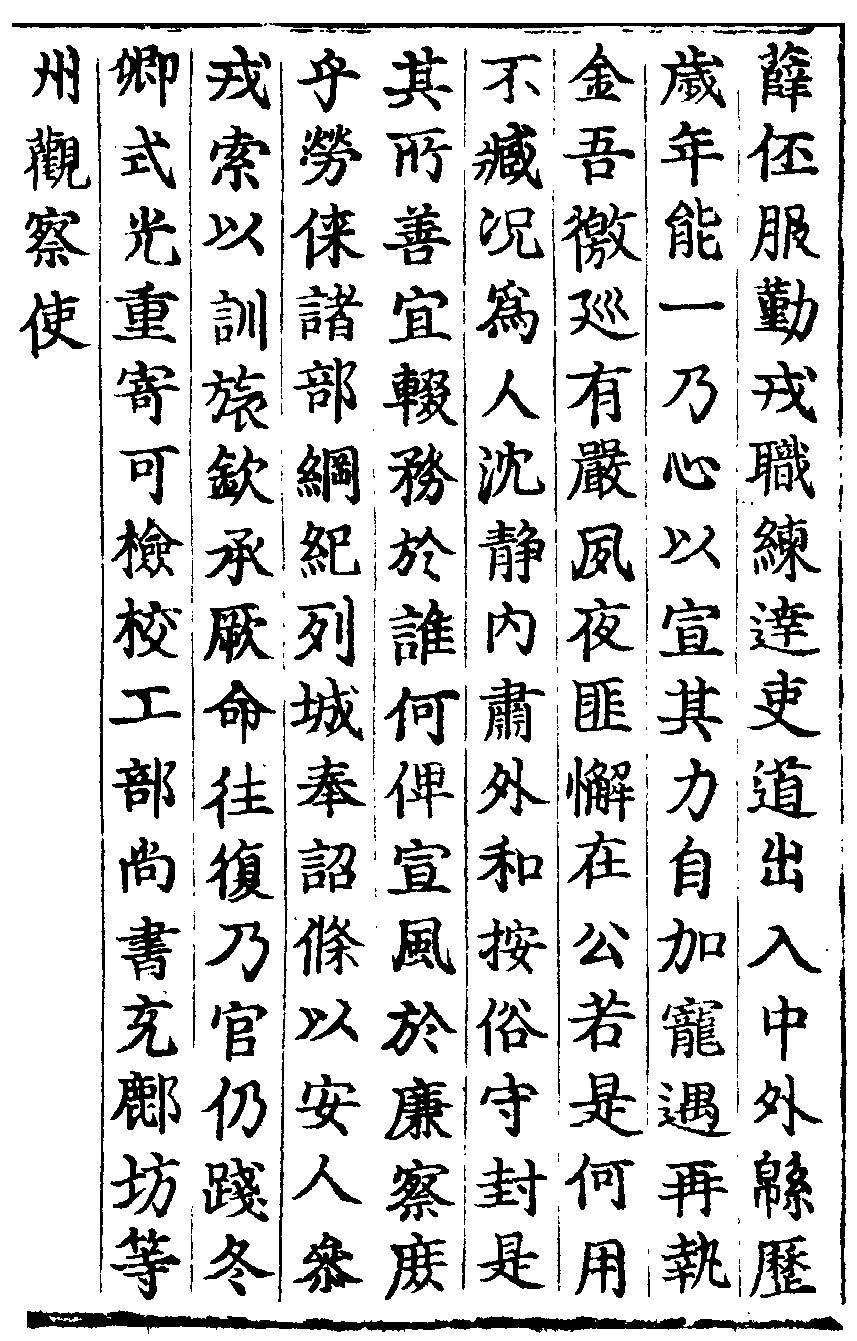 薛伾服勤戎職練達吏道出入中外緜歷
歲年能一乃心以宣其力自加寵遇再執
金吾徼巡有嚴夙夜匪懈在公若是何用
不臧况爲人沈静内肅外和按俗守封是
其所善宜輟務於誰何俾宣風於廉察庻
乎勞倈諸部綱紀列城奉詔條以安人叅
戎索以訓旅欽承厥命往復乃官仍踐冬
卿式光重寄可檢校工部尚書充鄜坊等
州觀察使